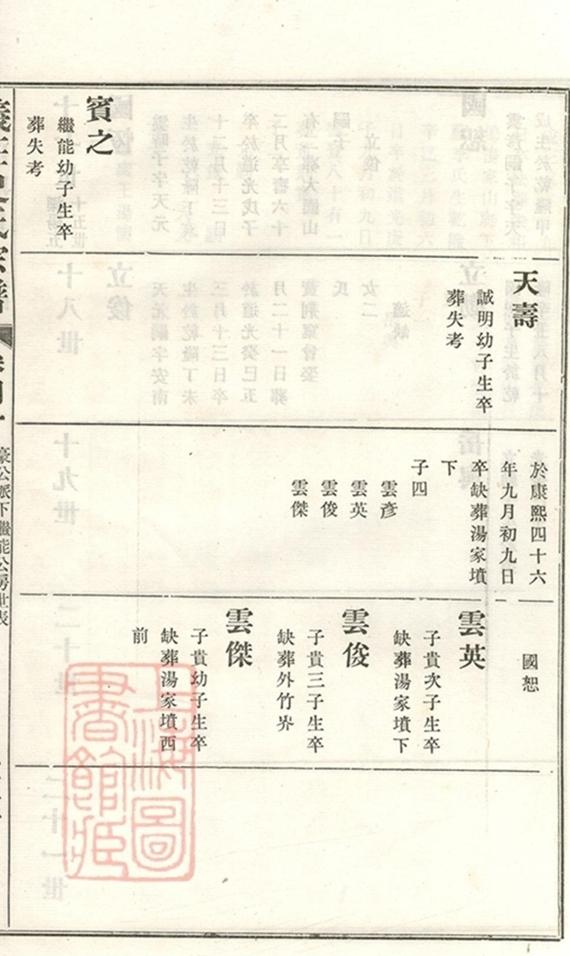 賓之
繼能幼子生卒
葬失考
天壽
誠明幼子生卒
葬失考
於康熙四十六
年九月初九日
卒缺葬湯家墳
下
子四
雲彥
雲英
雲俊
雲傑
國恕
雲英
子貴次子生卒
缺葬湯家墳下
雲俊
子貴三子生卒
缺葬外竹界
雲傑
子貴幼子生卒
缺葬湯家墳西
前
豪公派下繼能公房世表
上海圖
書館藏